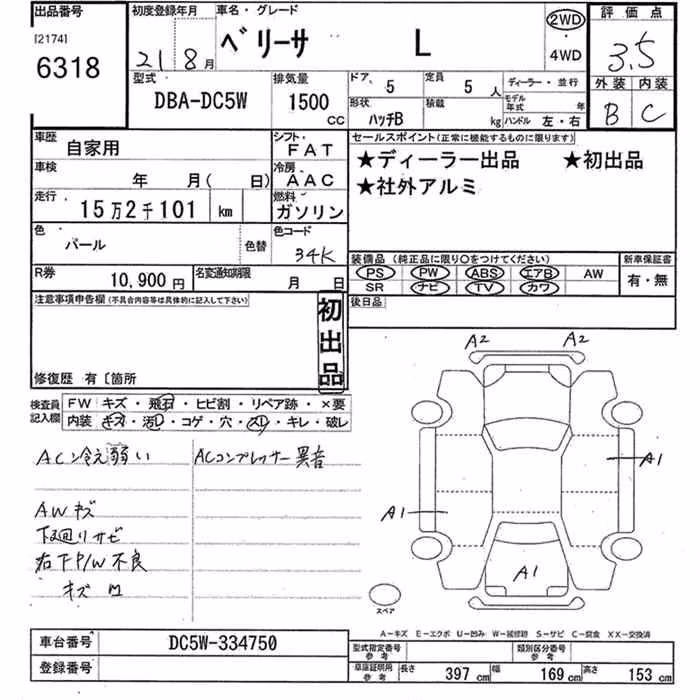 出品番号
[2174]
6318
初度登録年月
21 8月
車名・グレード
ベリーサ L
2WD
・
4WD
評価点
3.5
外装 内装
B C
型式
DBA-DC5W
排気量
1500
CC
ドア、 5
定員 5 人
ディーラー・並行
形状 ハッチB
積載 kg
モデル年式 年
ハンドル 左・右
車歴 自家用
シフト FAT
車検 年 月( 日)
冷房 AAC
走行 15万2千101 km
燃料 ガソリン
色 パール 色替
色コード 34K
R券 10,900円
名変通知期限 月 日
セールスポイント(正常に機能するものに限ります)
★ディーラー出品 ★初出品
★社外アルミ
装備品(純正品に限り○をつけてください)
新車保証書
PS PW ABS エアB AW
SR ナビ TV カワ
有・無
後日品
注意事項申告欄(不具合内容等は具体的に記入して下さい)
初出品
修復歴 有〔箇所
検査員記入欄
FW キズ・飛石・ヒビ割・リペア跡・×要
内装 キズ・汚れ・コゲ・穴・スレ・キレ・破レ
AC冷え弱い
ACコンプレッサー異音
AWキズ
下廻りサビ
右下P/W不良
キズ
A2 A2
A1
A1
A1
スペア
A−キズ E−エクボ U−凹み W−補修跡 S−サビ C−腐食 XX−交換済
車台番号 DC5W-334750
登録番号
型式指定番号 参考
類別区分番号 参考
車庫証明用 参考
長さ 397cm 幅 169cm 高さ 153cm